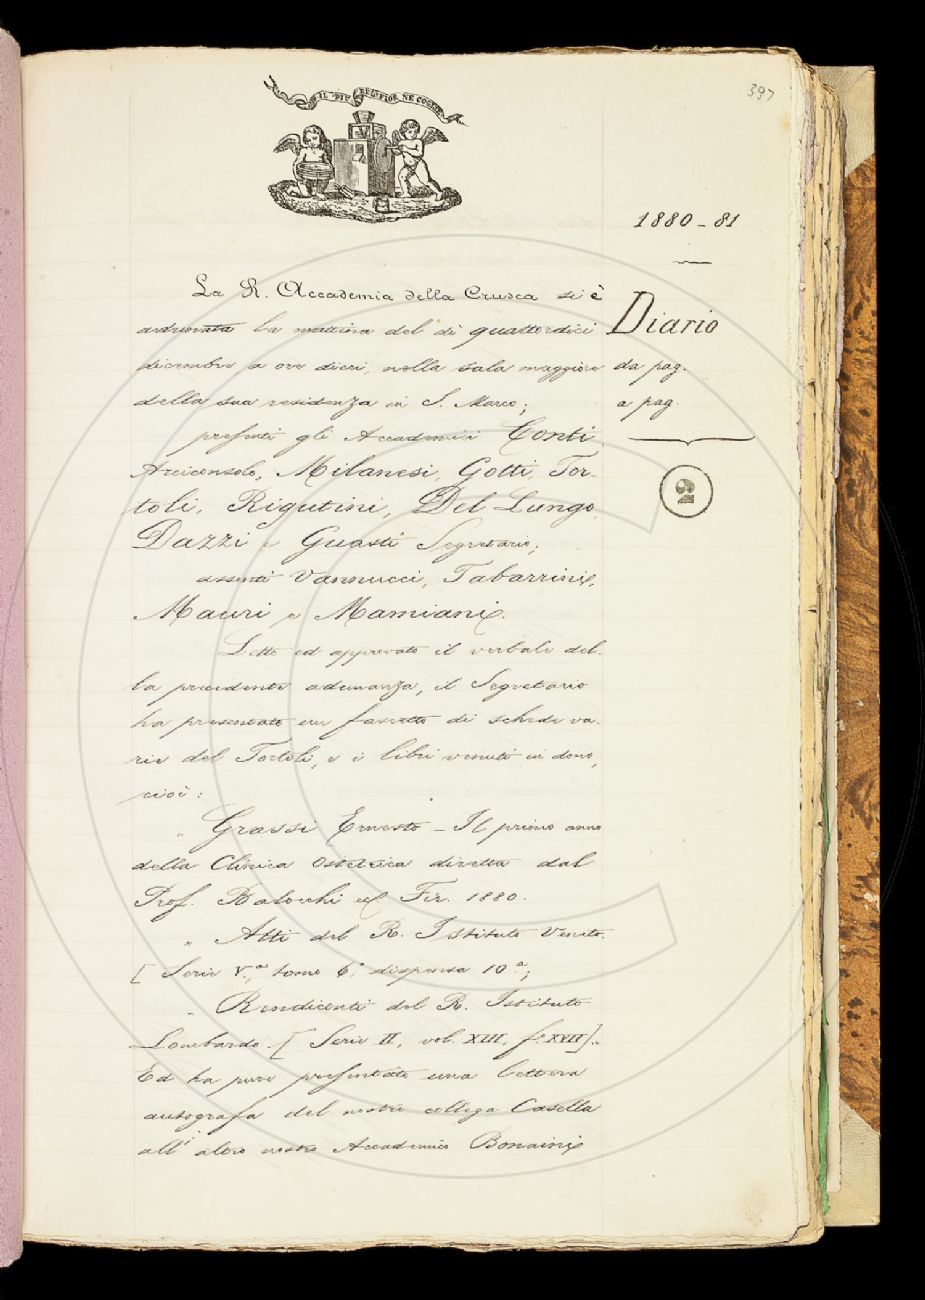 IL PIÙ BEL FIOR NE COGLIE
397
1880-81
La R. Accademia della Crusca si è
adunata la mattina del dì quattordici
dicembre a ore dieci, nella sala maggiore
della sua residenza in S. Marco;
presenti gli Accademici Conti
Arciconsolo, Milanesi, Gotti, Tor-
toli, Rigutini, Del Lungo,
Dazzi e Guasti Segretario;
assenti Vannucci, Tabarrini,
Mauri e Mamiani.
Diario
da pag.
a pag.
2
Letto ed approvato il verbale del-
la precedente adunanza, il Segretario
ha presentato un fascetto di schede va-
rie del Tortoli, e i libri venuti in dono,
cioè:
„ Grassi Ernesto - Il primo anno
della Clinica Ostetrica diretta dal
Prof. Balocchi ec. Fir. 1880.
„ Atti del R. Istituto Veneto.
[Serie V.ª, tomo 6.° dispensa 10.ª;
„ Rendiconti del R. Istituto
Lombardo. [Serie II, vol. XIII, f.° XVII].
Ed ha pure presentato una lettera
autografa del nostro collega Casella
all'altro nostro Accademico Bonaini